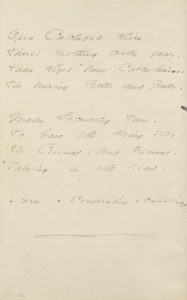 Upon Concluded lives
There's nothing cooler falls
Than Life's sweet Calculations
The mixing Bells and Palls
Makes Lacerating Tune
To Ears the Dying Side
'Tis Coronal and Funeral
Saluting in the Road